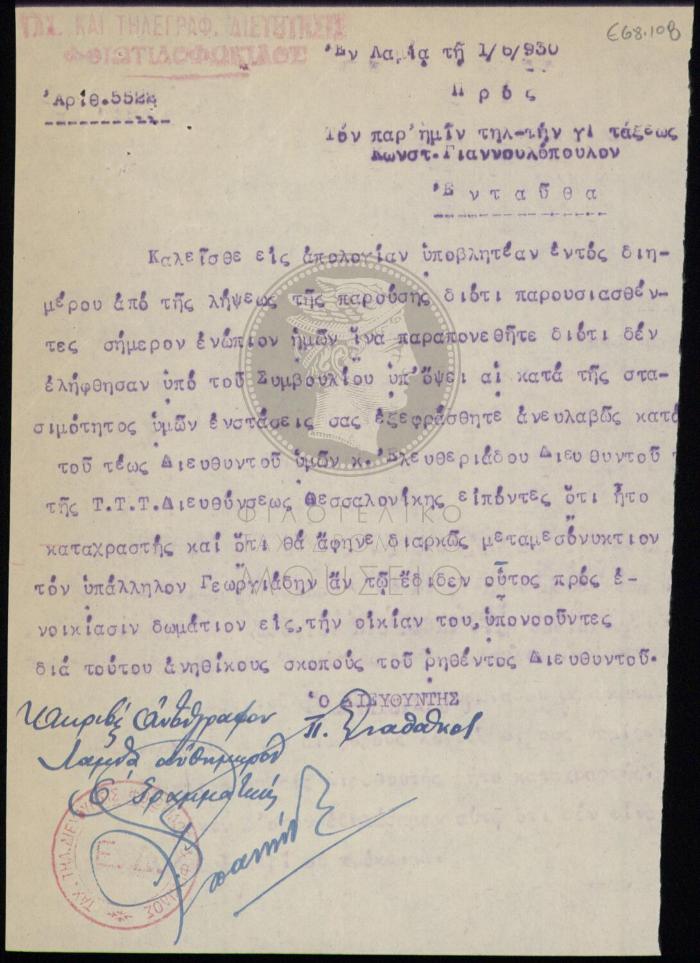 ΤΑΧ. ΚΑΙ ΤΗΛΕΓΡΑΦ. ΔΙΕΥΘΥΝΣΙΣ
ΦΘΙΩΤΙΔΟΦΩΚΙΔΟΣ
€68.10β
Ἐν Λαμίᾳ τῇ 1/6/930
Ἀριθ.5522
Πρός
Τόν παρ' ἡμῖν τηλ-τήν γι τάξεως
Κωνστ.Γιαννουλόπουλον
Ἐνταῦθα
Καλεῖσθε εἰς ἀπολογίαν ὑποβλητέαν ἐντός διη-
μέρου ἀπό τῆς λήψεως τῆς παρούσης διότι παρουσιασθέν-
τες σήμερον ἐνώπιον ἡμῶν ἵνα παραπονεθῆτε διότι δέν
ἐλήφθησαν ὑπό τοῦ Συμβουλίου ὑπ' ὄψει αἱ κατά τῆς στα-
σιμότητος ὑμῶν ἐνστάσεις σας ἐξεφράσθητε ἀνευλαβῶς κατά
τοῦ τέως Διευθυντοῦ ὑμῶν κ. Ἐλευθεριάδου Διευθυντοῦ
τῆς Τ.Τ.Τ.Διευθύνσεως Θεσσαλονίκης εἰπόντες ὅτι ἦτο
καταχραστής καί ὅτι θά ἄφηνε διαρκῶς μεταμεσονύκτιον
τόν ὑπάλληλον Γεωργιάδην ἄν τῷ ἔδιδεν οὗτος πρός ἐ-
νοικίασιν δωμάτιον εἰς τήν οἰκίαν του, ὑπονοοῦντες
διά τούτου ἀνηθίκους σκοπούς τοῦ ρηθέντος Διευθυντοῦ.
Ὁ ΔΙΕΥΘΥΝΤΗΣ
Ἀκριβές ἀντίγραφον
Λαμία αὐθημερόν
Ὁ Γραμματεύς
ΦΙΛΟΤΕΛΙΚΟ
ΜΟΥΣΕΙΟ